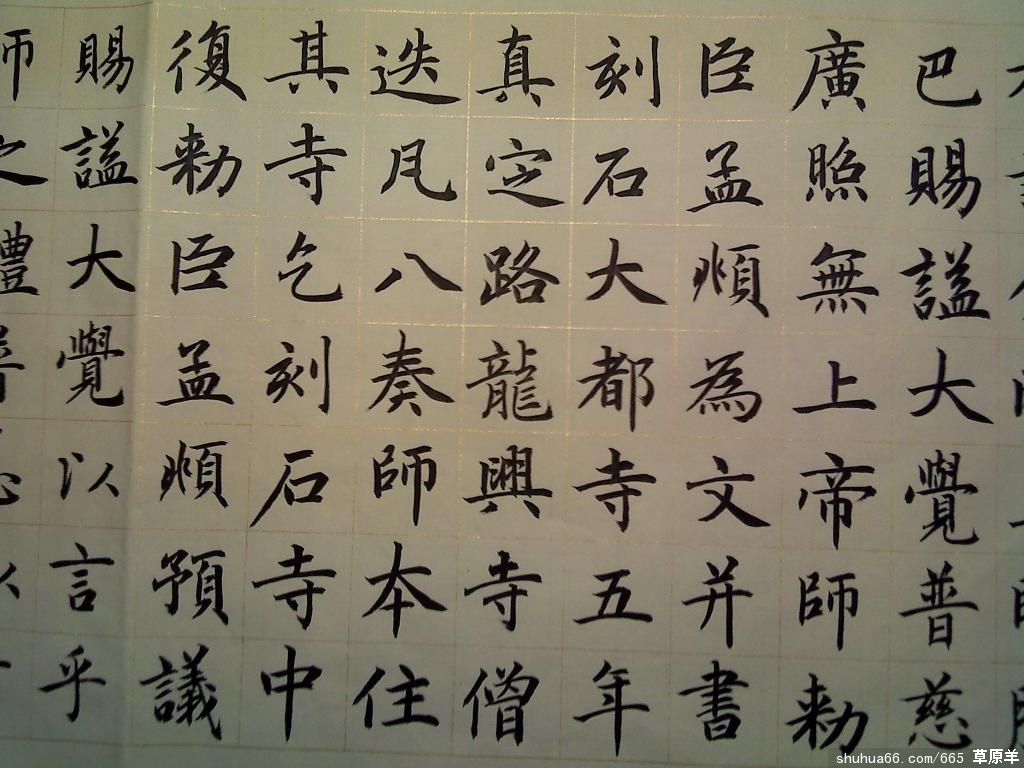 巴賜謚大覺普慈
廣照無上帝師勅
臣孟頫為文并書
刻石大都寺五年
真定路龍興寺僧
迭凡八奏師本住
其寺乞刻石寺中
復勅臣孟頫預議
賜謚大覺以言乎
shuhua66.com/665 草原羊